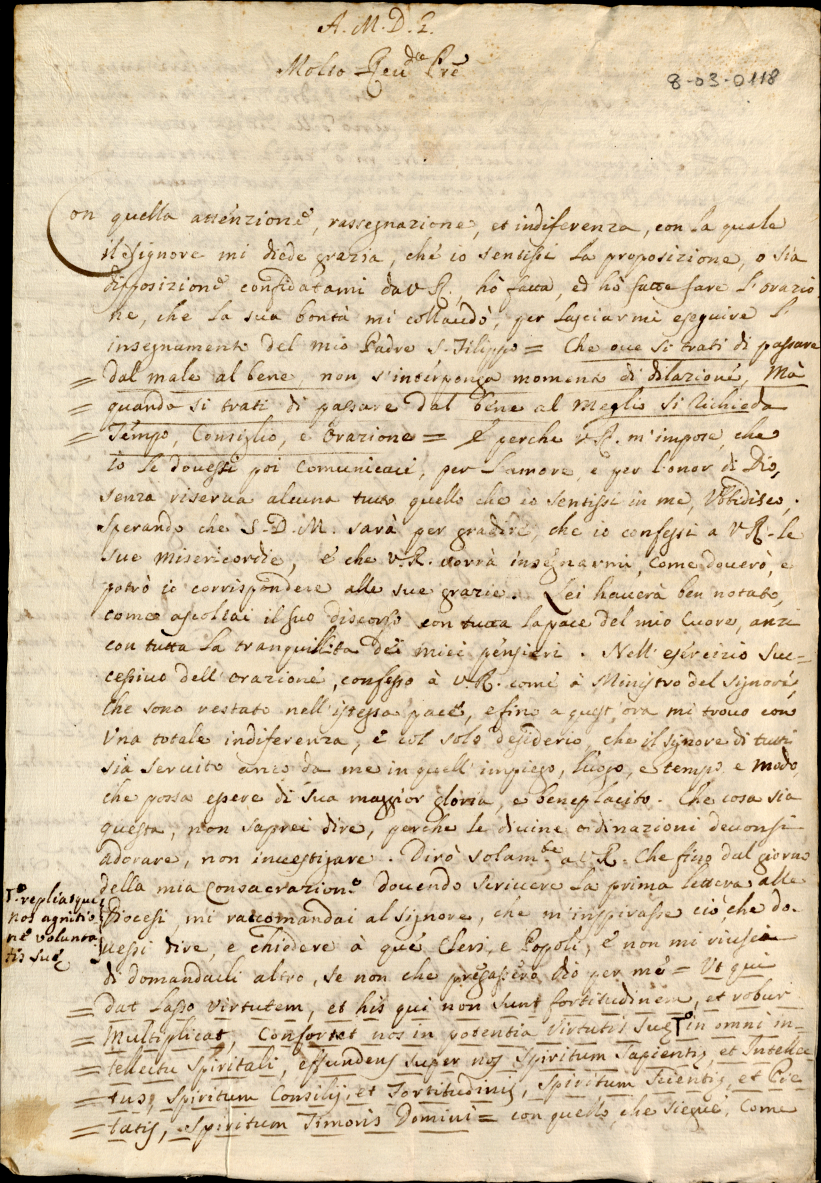 A. M. D. G.
Molto Reu.do Prê
8-03-0118
Con quella attenzione, rassegnazione, et indiferenza, con la quale
il Signore mi diede grazia, che io sentissi la proposizione, o sia
disposizione confidatami da V. R., hò fatta, ed hò fatto fare l'orazio-
ne, che la sua bontà mi collaudò, per lasciarmi eseguire l'
insegnamento del mio Padre S. Filippo = Che oue si trati di passare
= dal male al bene, non s'interponga momento di dilazione, Mà
= quando si trati di passare dal bene al meglio si richieda
= Tempo, Consiglio, e Orazione = E perche V. R. m'impose, che
io le douessi poi comunicare, per l'amore, e per l'onor di Dio,
senza riserua alcuna tutto quello che io sentissi in me, Vbbidisco,
sperando che S. D. M. sarà per gradire, che io confessi a V. R. le
sue misericordie, e che V. R. vorrà insegnarmi, come douerò, e
potrò io corrispondere alle sue grazie. Lei hauerà ben notato,
come ascoltai il suo discorso con tutta la pace del mio Cuore, anzi
con tutta la tranquillita dei miei pensieri. Nell'esercizio suc-
cessiuo dell'orazione, confesso à V. R. come à Ministro del Signore,
che sono restato nell'istessa pace, e fino a quest'ora mi trouo con
Vna totale indiferenza, e col solo desiderio, che il Signore di tutti
sia seruito anco da me in quell'impiego, luogo, e tempo, e modo
che possa essere di sua maggior gloria, e beneplacito. Che cosa sia
questa, non saprei dire, perche le diuine ordinazioni deuonsi
adorare, non inuestigare. Dirò solam.te a V. R. Che fino dal giorno
della mia Consacrazione douendo scriuere la prima lettera alle
Diocesi, mi raccomandai al Signore, che m'inspirasse ciò, che do-
uessi dire, e chiedere à quei Cleri, e Popoli, e non mi riuscia
di domandarli altro, se non che pregassero Dio per me = Vt qui
= dat lasso virtutem, et his qui non sunt fortitudinem, et robur
= Multiplicat, Confortet nos in potentia Virtutis suę in omni in-
= tellectu Spiritali, effundens super nos Spiritum Sapientię, et Intellec-
= tus, Spiritum Consilij, et Fortitudinis, Spiritum Scientię, et Pie-
= tatis, Spiritum Timoris Domini = con quello, che siegue, Come
repleatque
nos agnitio-
ne volunta-
tis suę